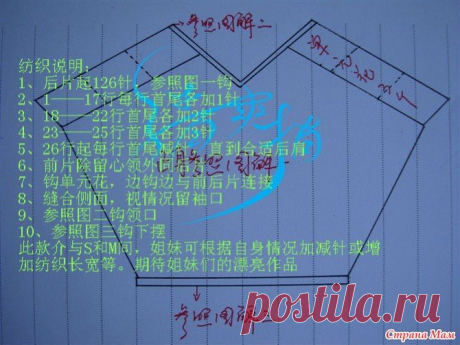 参照图解二
纺织说明:
1、后片起126针，参照图一钩
2、1——17行每行首尾各加1针
3、18——22行首尾各加2针
4、23——25行首尾各加3针
5、26行起每行首尾减针，直到合适后肩
6、前片除留心领外同后片
7、钩单元花，边钩边与前后片连接
8、缝合侧面，视情况留袖口
9、参照图二钩领口
10、参照图三钩下摆
此款介与S和M间，姐妹可根据自身情况加减针或增
加纺织长宽等。期待姐妹们的漂亮作品
参照图解一
单元花
参照图解三
postila.ru
Страна Мам